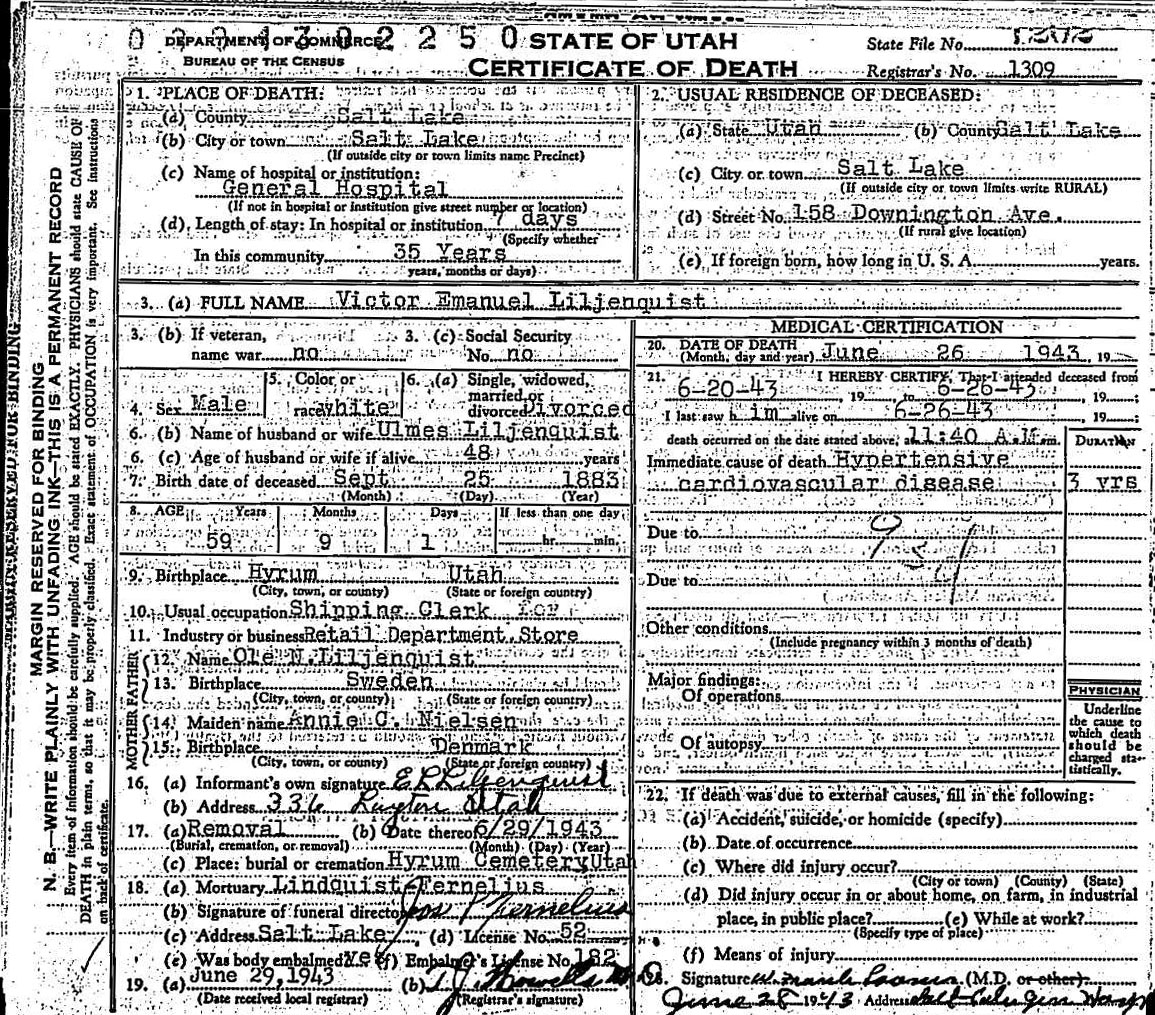 0 2 0 1 3 0 2 2 5 0
DEPARTMENT OF COMMERCE
BUREAU OF THE CENSUS
STATE OF UTAH
CERTIFICATE OF DEATH
State File No.
Registrar's No. 1309
MARGIN RESERVED FOR BINDING
N. B.—WRITE PLAINLY WITH UNFADING INK—THIS IS A PERMANENT RECORD
Every item of information should be carefully supplied. AGE should be stated EXACTLY. PHYSICIANS should state CAUSE OF
DEATH in plain terms, so that it may be properly classified. Exact statement of OCCUPATION is very important. See instructions
on back of certificate.
1. PLACE OF DEATH:
(a) County Salt Lake
(b) City or town Salt Lake
(If outside city or town limits name Precinct)
(c) Name of hospital or institution:
General Hospital
(If not in hospital or institution give street number or location)
(d) Length of stay: In hospital or institution 7 days
(Specify whether
In this community 35 Years
years, months or days)
2. USUAL RESIDENCE OF DECEASED:
(a) State Utah (b) County Salt Lake
(c) City or town Salt Lake
(If outside city or town limits write RURAL)
(d) Street No. 158 Downington Ave.
(If rural give location)
(e) If foreign born, how long in U. S. A. years.
3. (a) FULL NAME Victor Emanuel Liljenquist
3. (b) If veteran, name war no
3. (c) Social Security No. no
4. Sex Male
5. Color or race white
6. (a) Single, widowed, married or divorced Divorced
6. (b) Name of husband or wife Ulmes Liljenquist
6. (c) Age of husband or wife if alive 48 years
7. Birth date of deceased Sept 25 1883
(Month) (Day) (Year)
8. AGE Years Months Days If less than one day
59 9 1 hr. min.
9. Birthplace Hyrum Utah
(City, town, or county) (State or foreign country)
10. Usual occupation Shipping Clerk
11. Industry or business Retail Department Store
FATHER
12. Name Ole N. Liljenquist
13. Birthplace Sweden
(City, town, or county) (State or foreign country)
MOTHER
14. Maiden name Annie C. Nielsen
15. Birthplace Denmark
(City, town, or county) (State or foreign country)
16. (a) Informant's own signature E L Liljenquist
(b) Address 336 Layton Utah
17. (a) Removal (b) Date thereof 6/29/1943
(Burial, cremation, or removal) (Month) (Day) (Year)
(c) Place: burial or cremation Hyrum Cemetery, Utah
18. (a) Mortuary Lindquist-Fernelius
(b) Signature of funeral director Jos P Fernelius
(c) Address Salt Lake (d) License No. 52
(e) Was body embalmed Yes (f) Embalmer's License No. 182
19. (a) June 29, 1943 (b) T. J. Howells
(Date received local registrar) (Registrar's signature)
MEDICAL CERTIFICATION
20. DATE OF DEATH
(Month, day and year) June 26 1943, 19
21. I HEREBY CERTIFY, That I attended deceased from
6-20-43 19 to 6-26-43, 19 ;
I last saw h im alive on 6-26-43 19 ;
death occurred on the date stated above, at 11:40 A.M. m.
DURATION
Immediate cause of death Hypertensive
cardiovascular disease 3 yrs
Due to
Due to
Other conditions
(Include pregnancy within 3 months of death)
Major findings:
Of operations
Of autopsy
PHYSICIAN
Underline
the cause to
which death
should be
charged sta-
tistically.
22. If death was due to external causes, fill in the following:
(a) Accident, suicide, or homicide (specify)
(b) Date of occurrence
(c) Where did injury occur?
(City or town) (County) (State)
(d) Did injury occur in or about home, on farm, in industrial
place, in public place? (e) While at work?
(Specify type of place)
(f) Means of injury
23. Signature (M.D. or other)
June 28 1943 Address